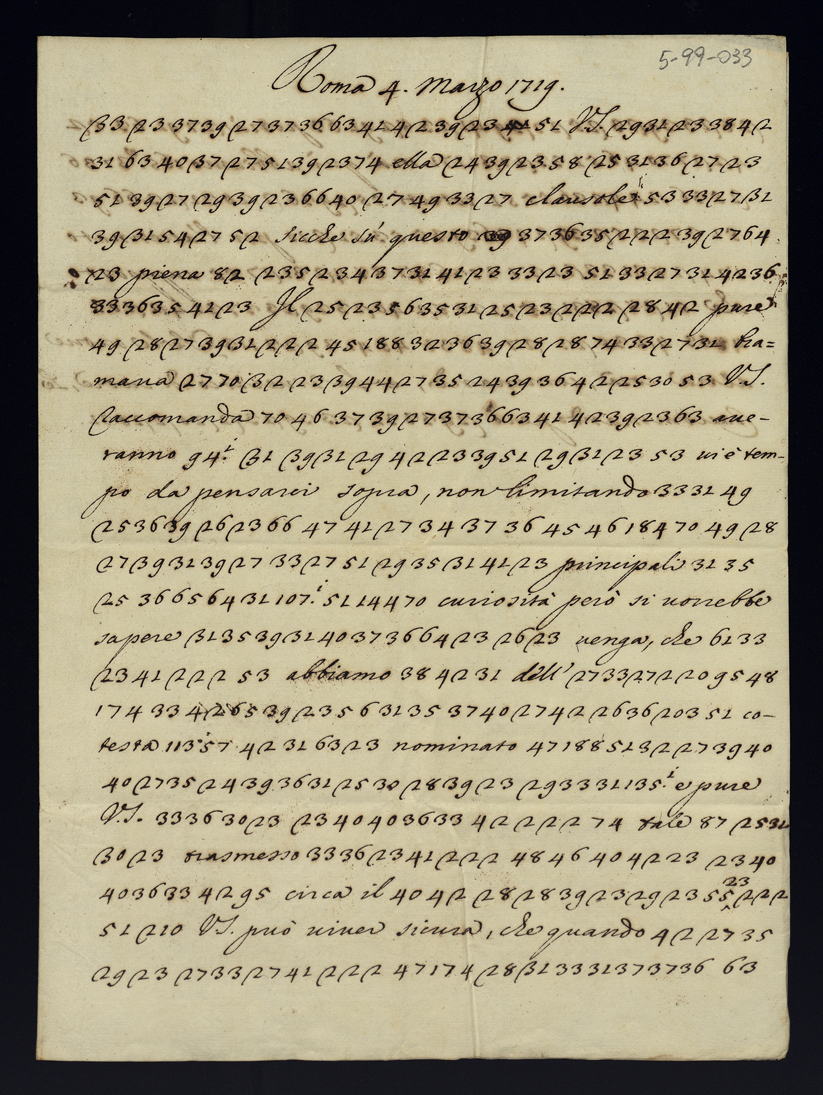 5-99-033
Roma 4. Marzo 1719.
33 23 37 39 27 37 36 63 41 42 39 23 41 51 V.S. 29 31 23 38 42
31 63 40 37 27 51 39 23 74 ella 24 39 23 58 25 31 36 27 23
51 39 27 29 39 23 66 40 27 49 33 27 clausole 53 33 27 31
39 31 54 27 52 sicche sù questo 37 36 35 22 23 92 76 4
23 piena 82 23 52 34 37 31 41 23 33 23 51 33 27 31 42 36
33 36 35 41 23 Il 25 23 56 35 31 25 23 22 22 84 2 pure
49 28 27 39 31 22 24 51 88 32 36 39 28 28 74 33 27 31 bra=
mava 27 70 32 23 39 44 27 35 24 39 36 42 25 30 53 V.S.
raccomanda 70 46 37 39 27 37 36 63 41 42 39 23 63 ave-
ranno 94.i 31 39 31 29 42 23 39 51 29 31 23 53 vi è tem-
po da pensarci sopra, non limitando 33 31 49
25 36 39 26 23 66 47 41 27 34 37 36 45 46 184 70 49 28
27 39 31 39 27 33 27 51 29 35 31 41 23 principali 31 35
25 36 65 64 31 107.i 51 144 70 curiosità però si vorrebbe
sapere 31 35 39 31 40 37 36 64 23 26 23 venga, che 61 33
23 41 22 2 53 abbiamo 38 42 31 dell' 27 33 27 22 09 54 8
174 33 42 65 39 23 56 31 35 37 40 27 42 26 36 203 51 co-
testa 113 57 42 31 63 23 nominato 47 188 51 32 27 39 40
40 27 35 24 39 36 31 25 30 28 39 23 29 33 31 135.i e pure
V.S. 33 36 30 23 23 40 40 36 33 42 22 27 4 tale 87 25 31
30 23 trasmesso 33 36 23 41 22 2 48 46 40 42 23 23 40
40 36 33 42 95 circa il 40 42 28 28 39 23 29 23 55 23 22 2
51 210 V.S. può viver sicura, che quando 42 27 35
29 23 27 33 27 41 22 2 47 174 28 31 33 31 37 37 36 63